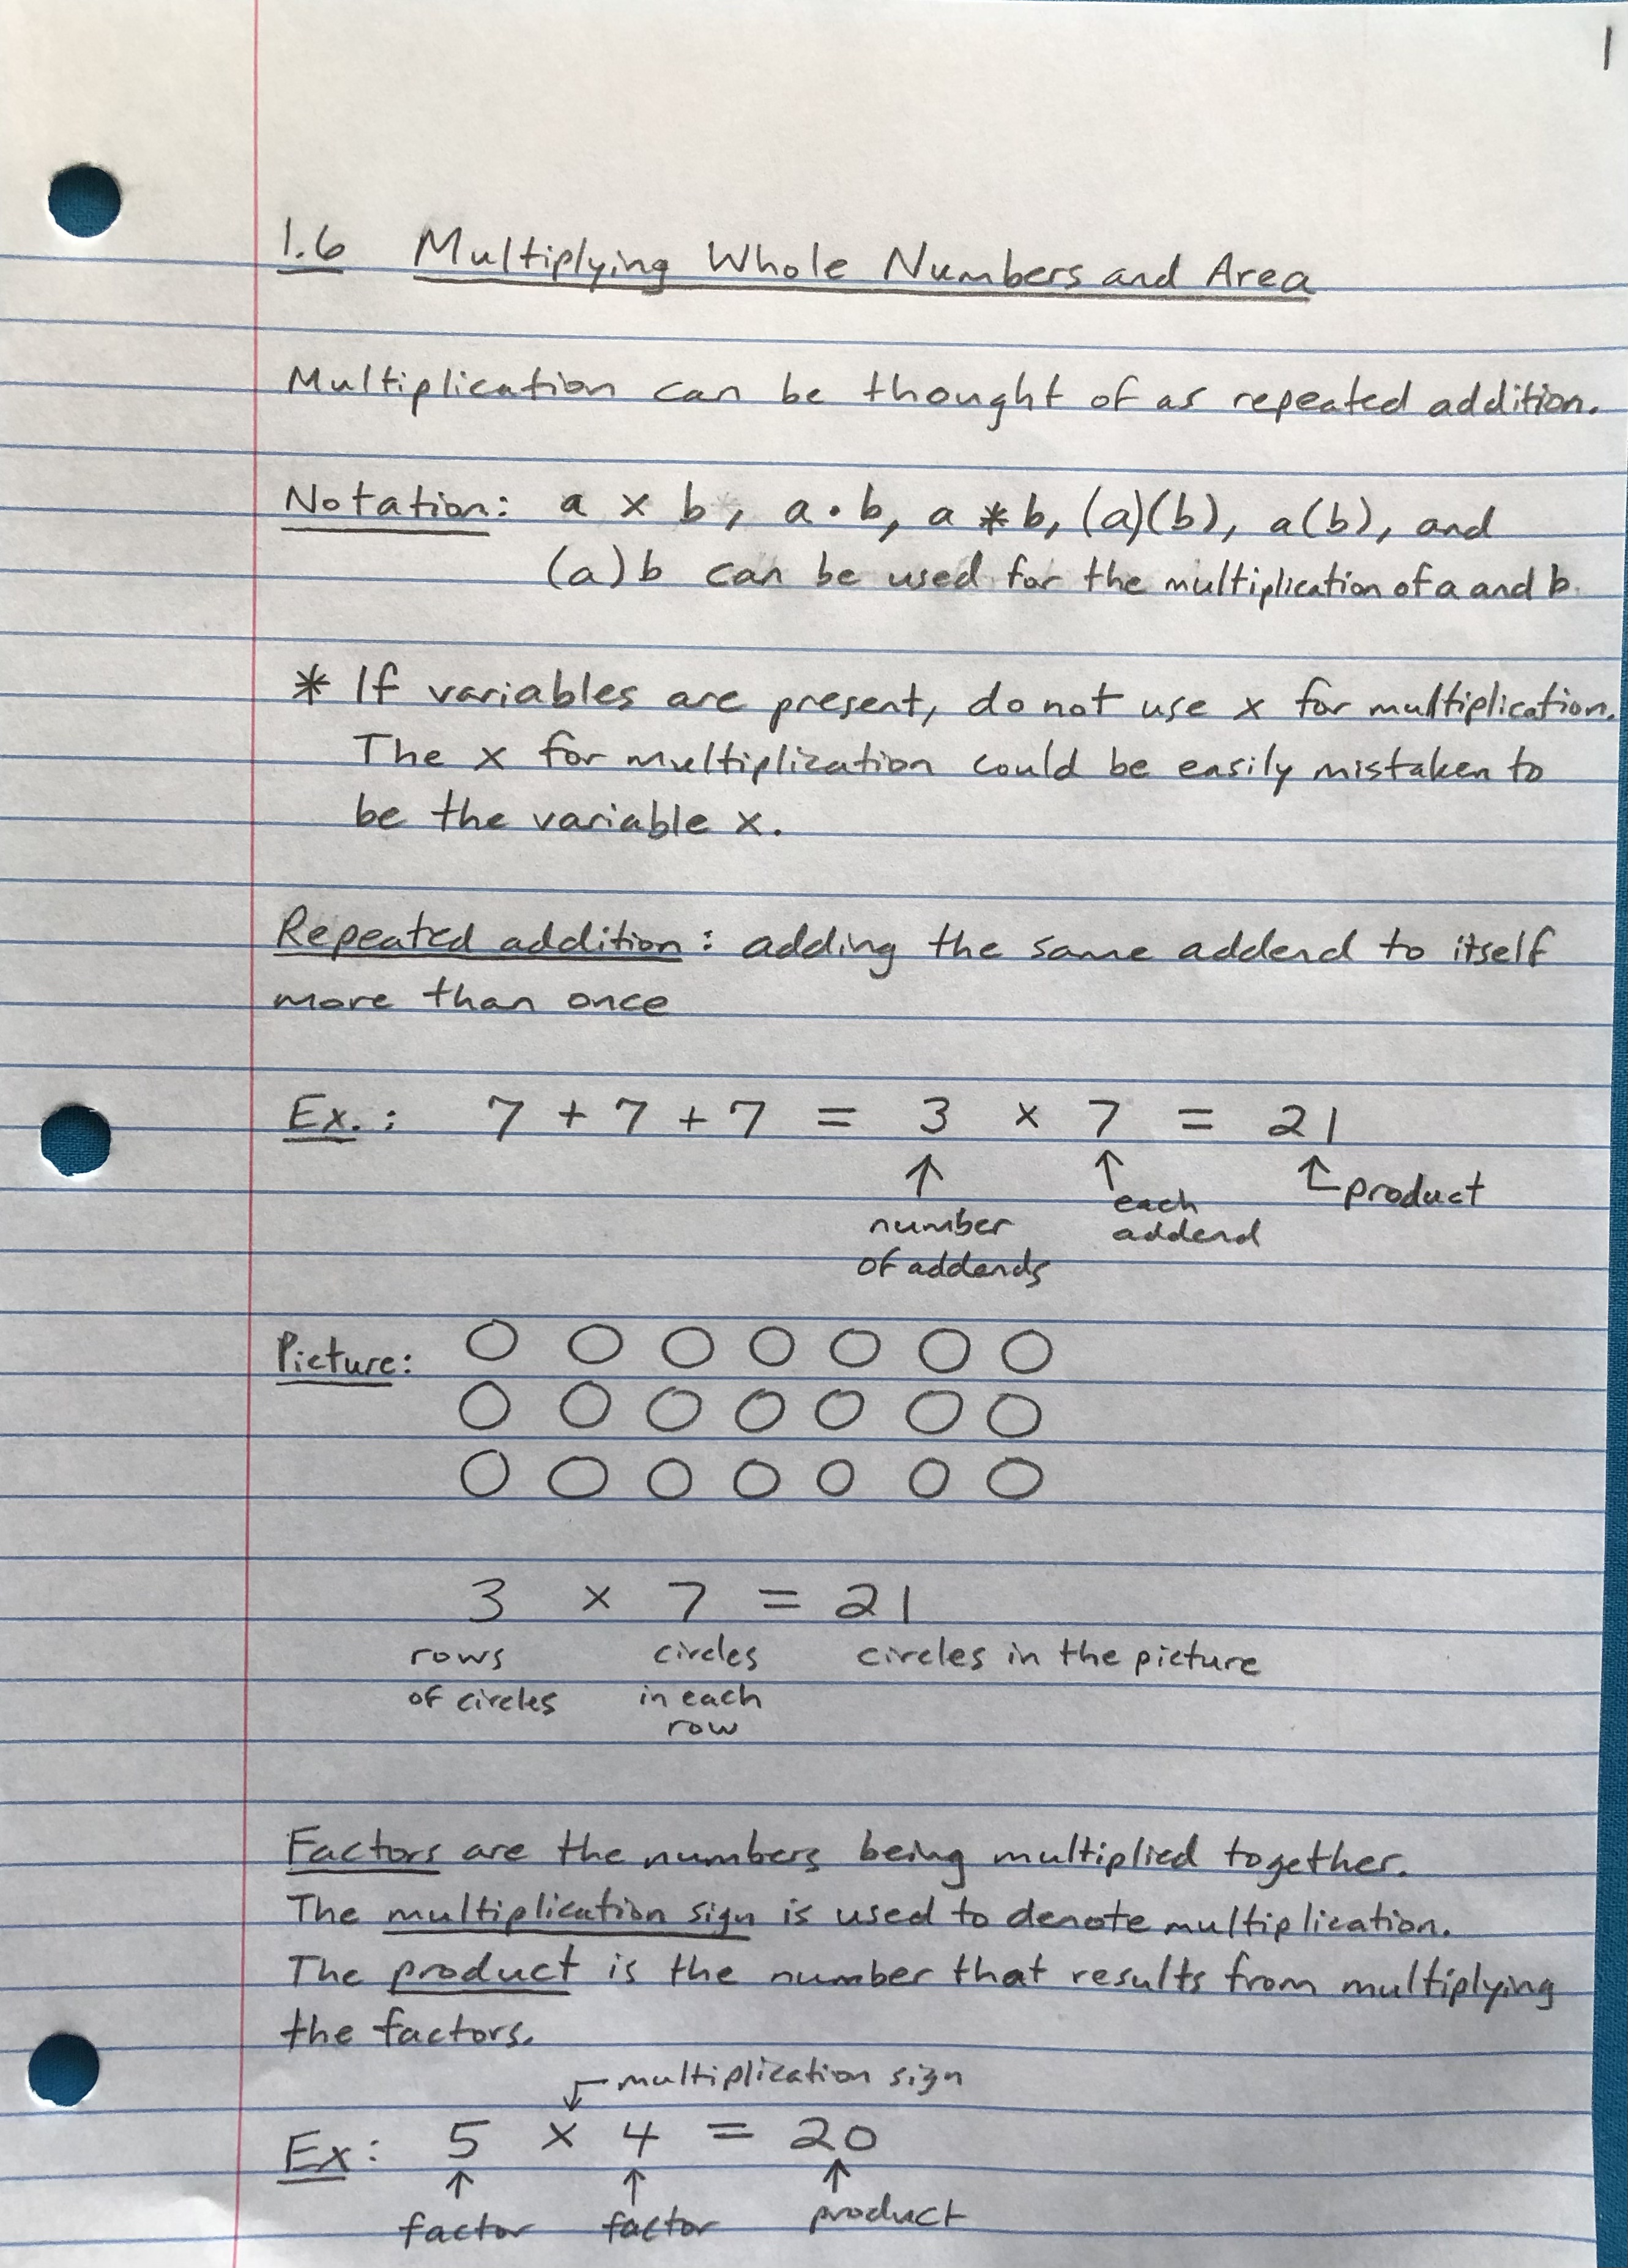 1
1.6 Multiplying Whole Numbers and Area
Multiplication can be thought of as repeated addition.
Notation: a x b, a • b, a * b, (a)(b), a(b), and
(a)b can be used for the multiplication of a and b.
* If variables are present, do not use x for multiplication.
The x for multiplication could be easily mistaken to
be the variable x.
Repeated addition: adding the same addend to itself
more than once
Ex.: 7 + 7 + 7 = 3 x 7 = 21
↑ ↑ ↑ product
number each
of addends addend
Picture:
3 x 7 = 21
rows circles circles in the picture
of circles in each
row
Factors are the numbers being multiplied together.
The multiplication sign is used to denote multiplication.
The product is the number that results from multiplying
the factors.
multiplication sign
Ex: 5 x 4 = 20
↑ ↑ ↑
factor factor product